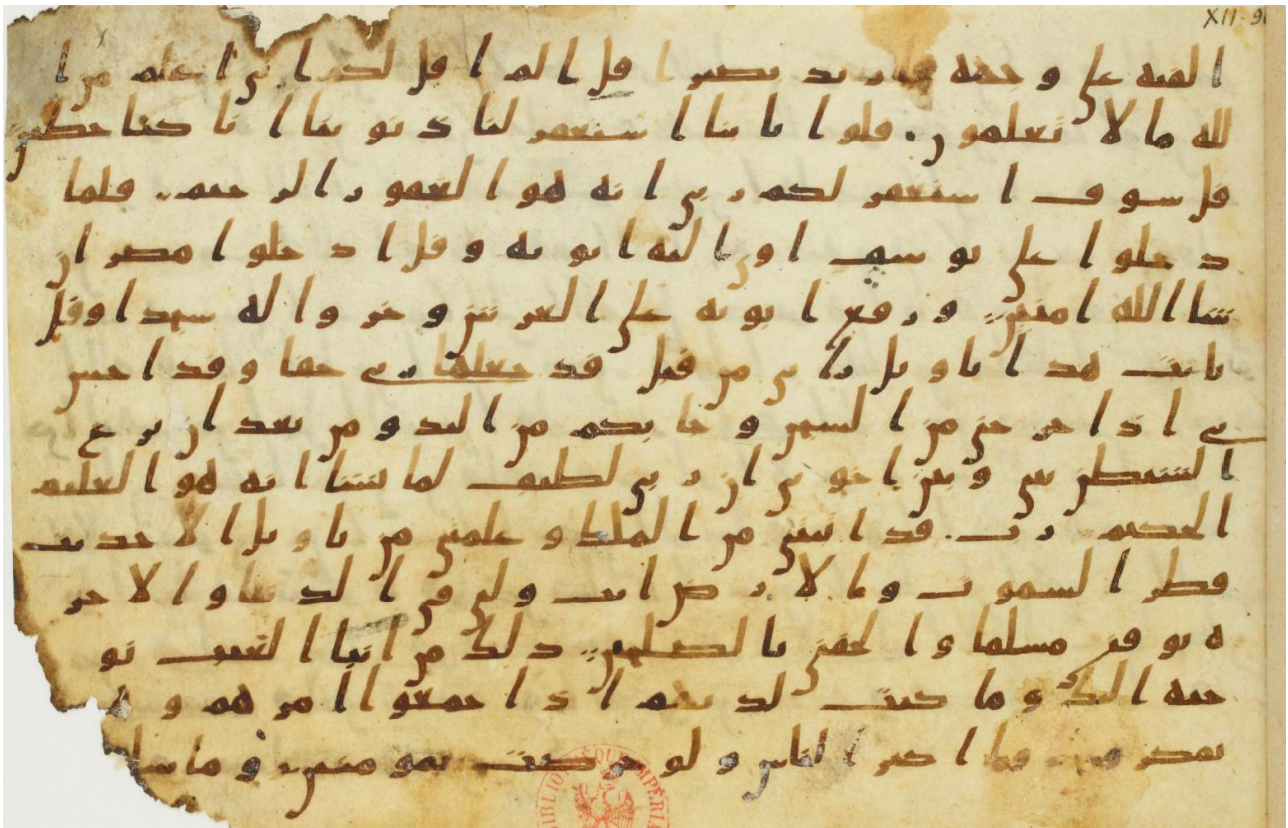 XII-9
القيه على وجهه فارتد بصيرا قل الم اقل لكم اني اعلم من ا
لله ما لا تعلمون قلوا يابنا استغفر لنا ذنوبنا انا كنا خطين
قل سوف استغفر لكم ربي انه هو الغفور الرحيم فلما
دخلوا على يوسف اوى اليه ابويه وقل ادخلوا مصر ان
شا الله امنين ورفع ابويه على العرش وخروا له سجدا وقل
يابت هذا تاويل رياي من قبل قد جعلها ربي حقا وقد احسن
بي اذ اخرجني من السجن وجا بكم من البدو من بعد ان نزغ
الشيطن بيني وبين اخوتي ان ربي لطيف لما يشا انه هو العليم
الحكيم رب قد اتيتني من الملك وعلمتني من تاويل الاحديث
فطر السموت والارض انت ولي في الدنيا والاخر
ة توفني مسلما والحقني بالصلحين ذلك من انبا الغيب نو
حيه اليك وما كنت لديهم اذ اجمعوا امرهم و
يمكرون وما اكثر الناس ولو حرصت بمومنين وما